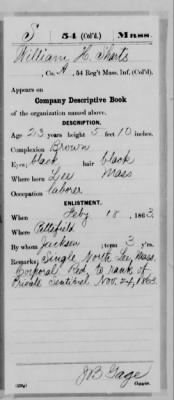 S 54 (Col'd.) Mass.
William H. Sharts
, Co. A, 54 Reg't Mass. Inf. (Col'd)
Appears on
Company Descriptive Book
of the organization named above.
DESCRIPTION.
Age 23 years; height 5 feet 10 inches.
Complexion Brown
Eyes black; hair black
Where born Lee Mass
Occupation laborer
ENLISTMENT.
When Feby 18, 1863.
Where Pittsfield
By whom Jackson; term 3 y'rs.
Remarks: Single North Lee, Mass.
Corporal Red. to rank of
Private Sentinel Nov. 24, 1863.
J B Gage
Copyist.